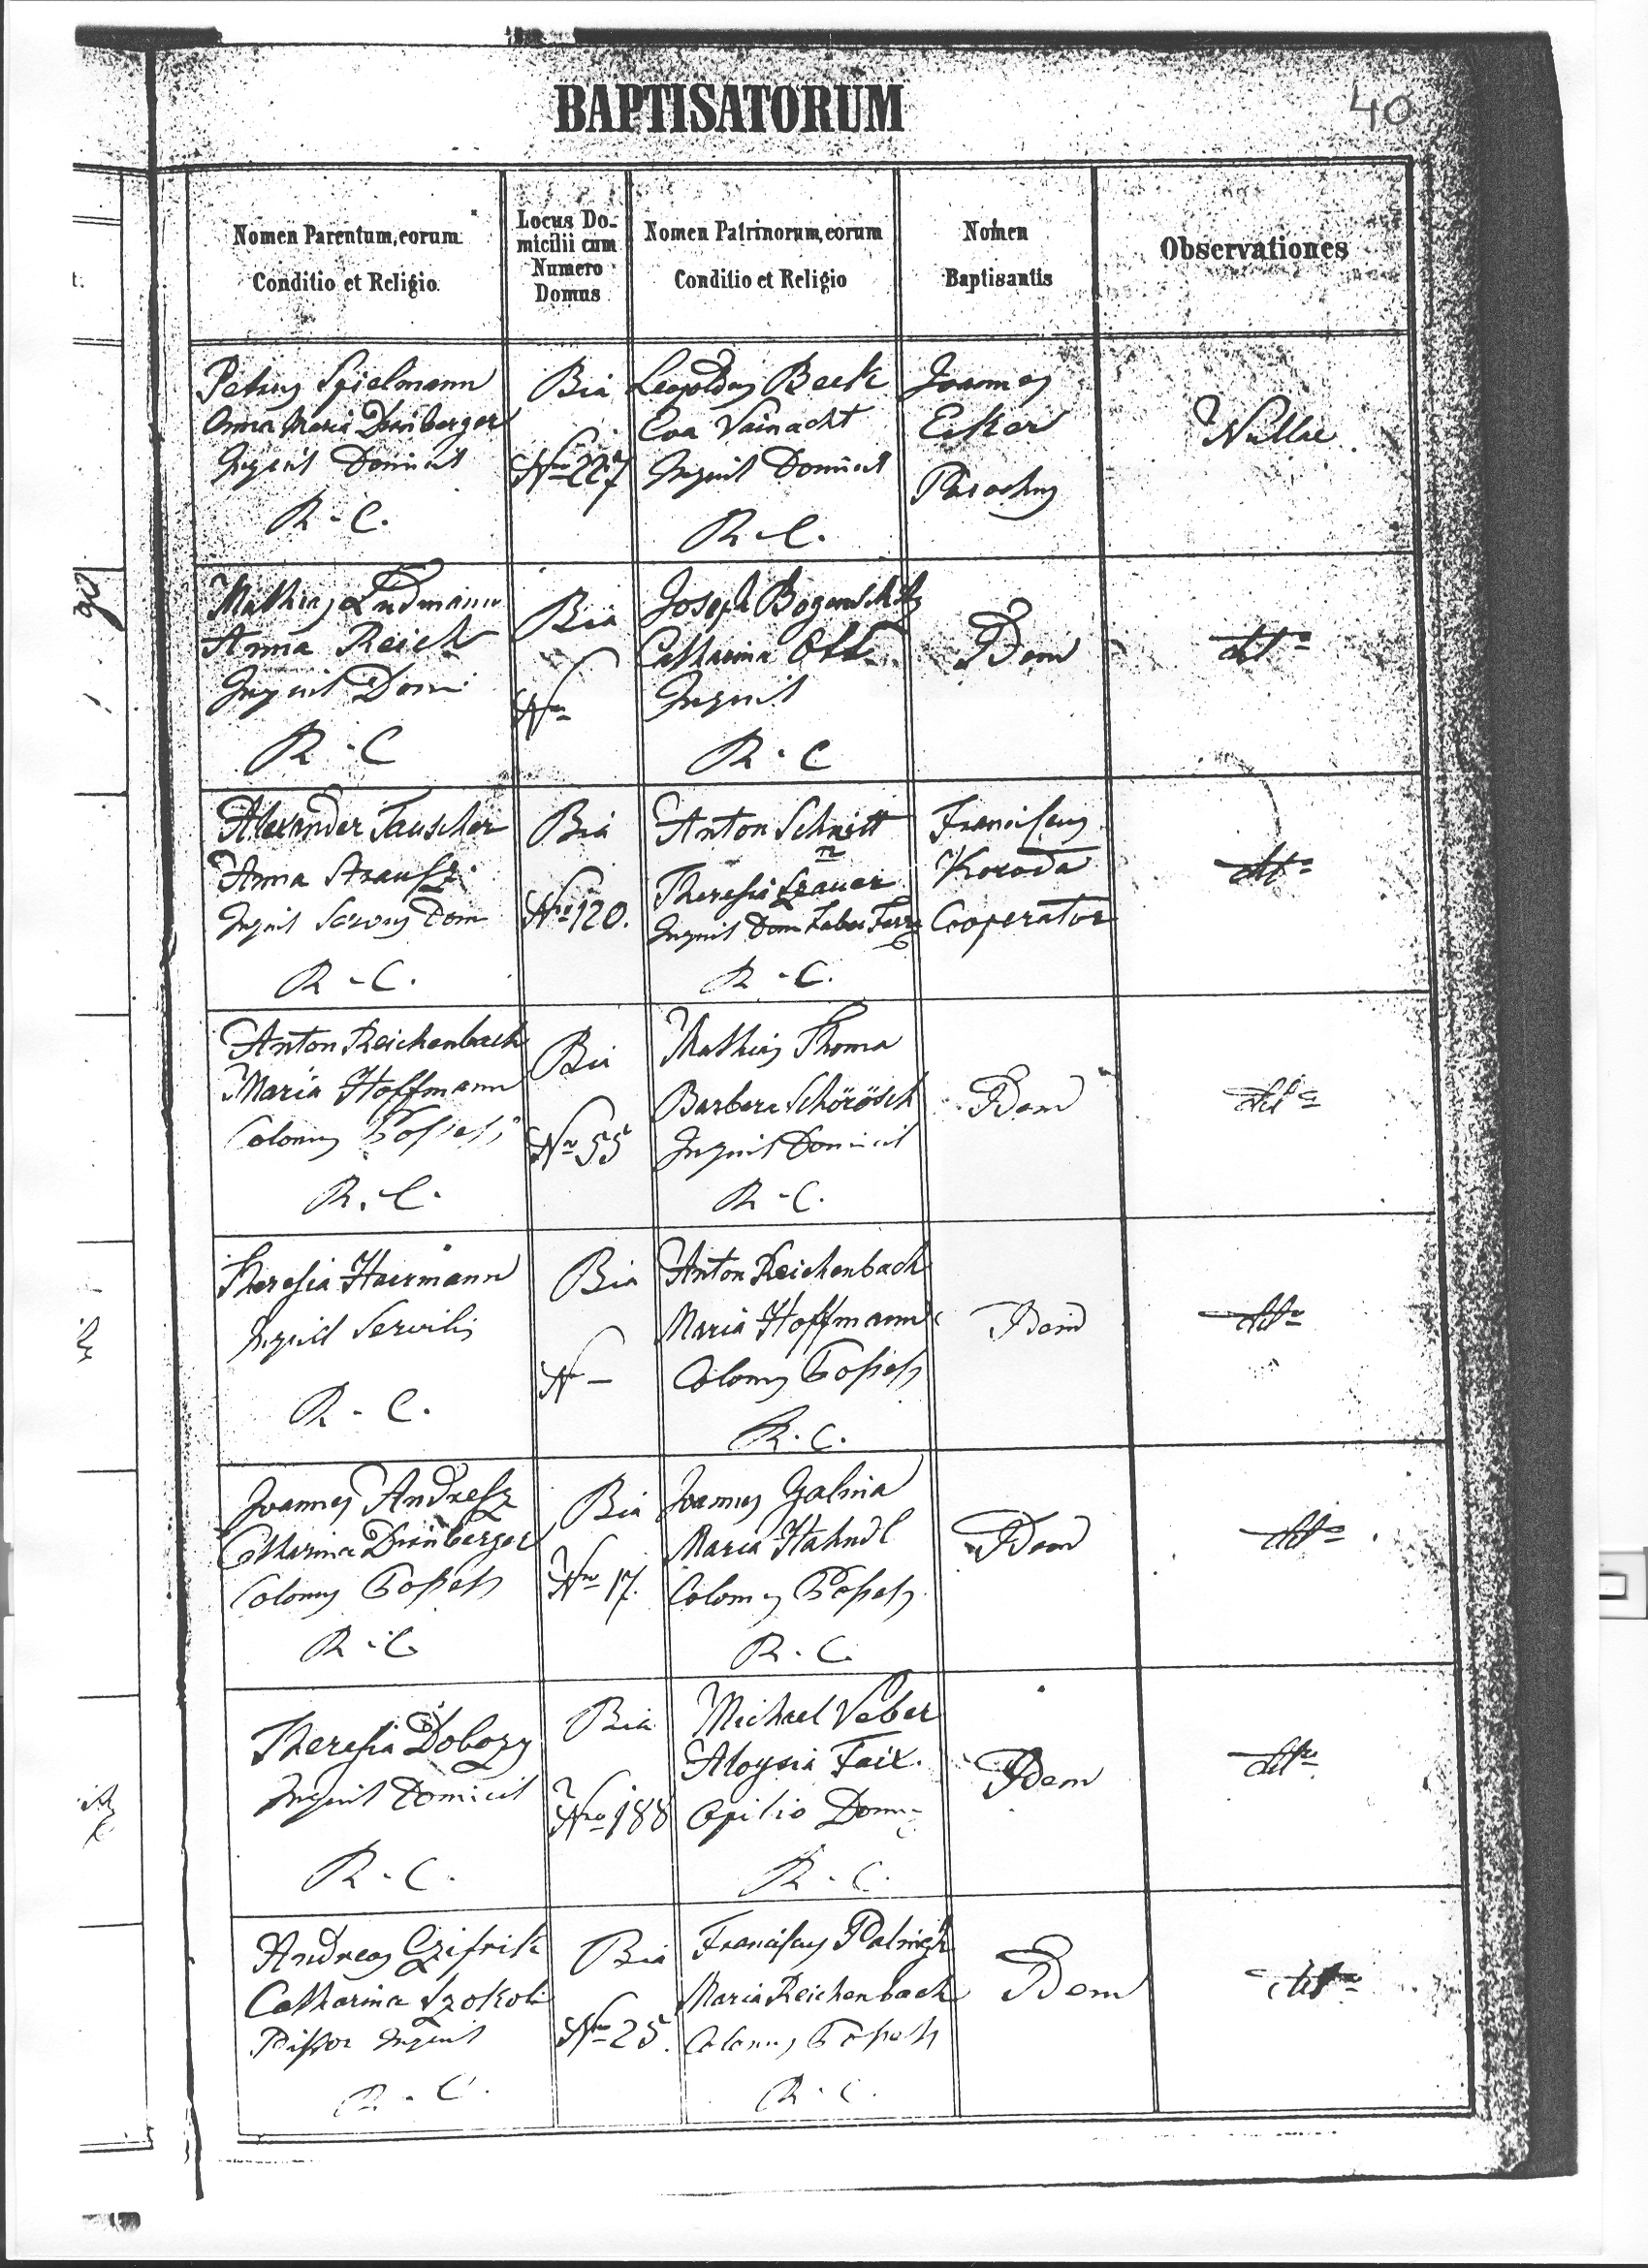 BAPTISATORUM
40
Nomen Parentum, eorum
Conditio et Religio
Locus Do-
micilii cum
Numero
Domus
Nomen Patrinorum, eorum
Conditio et Religio
Nomen
Baptisantis
Observationes
Petrus Spielmann
Anna Maria
Inquil Domicil
R - C.
Bia
Nro 227
Leopoldus Beck
Eva Vainacht
Inquil Domicil
R - C.
Joannes
Ecker
Parochus
Nullae
Mathias
Anna Reich
Inquil Domi
R - C
Bia
Nro
Joseph
Catharina Ott
Inquil
R - C
Idem
dtto
Alexander Tauscher
Anna Strausz
Inquil Servus Dom
R - C.
Bia
Nro 120.
Anton Schnitt
n
Theresia
Inquil Dom Faber
R - C.
Franciscus
Koroda
Cooperator
dtto
Anton Reichenbach
Maria Hoffmann
Colonus Possess
R. C.
Bia
Nro 55
Mathias Thoma
Barbara Schörösch
Inquil Domicil
R - C.
Idem
dtto
Theresia Haermann
Inquil Servilis
R - C.
Bia
N -
Anton Reichenbach
Maria Hoffmann
Colonus Possess
R. C.
Idem
dtto
Joannes Andresz
Catharina
Colonus Possess
R - C
Bia
Nro 17.
Joannes Galina
Maria Hahndl
Colonus Possess
R. C.
Idem
dtto
Theresia Dobozy
Inquil Domicil
R - C.
Bia
Nro 188
Michael Veber
Aloysia Faix.
Opilio Domin
R - C.
Idem
dtto
Andreas Czifrik
Catharina Szokoli
Pistor Inquil
R - C.
Bia
Nro 25.
Franciscus
Maria Reichenbach
Colonus Possess
R - C.
Idem
dtto